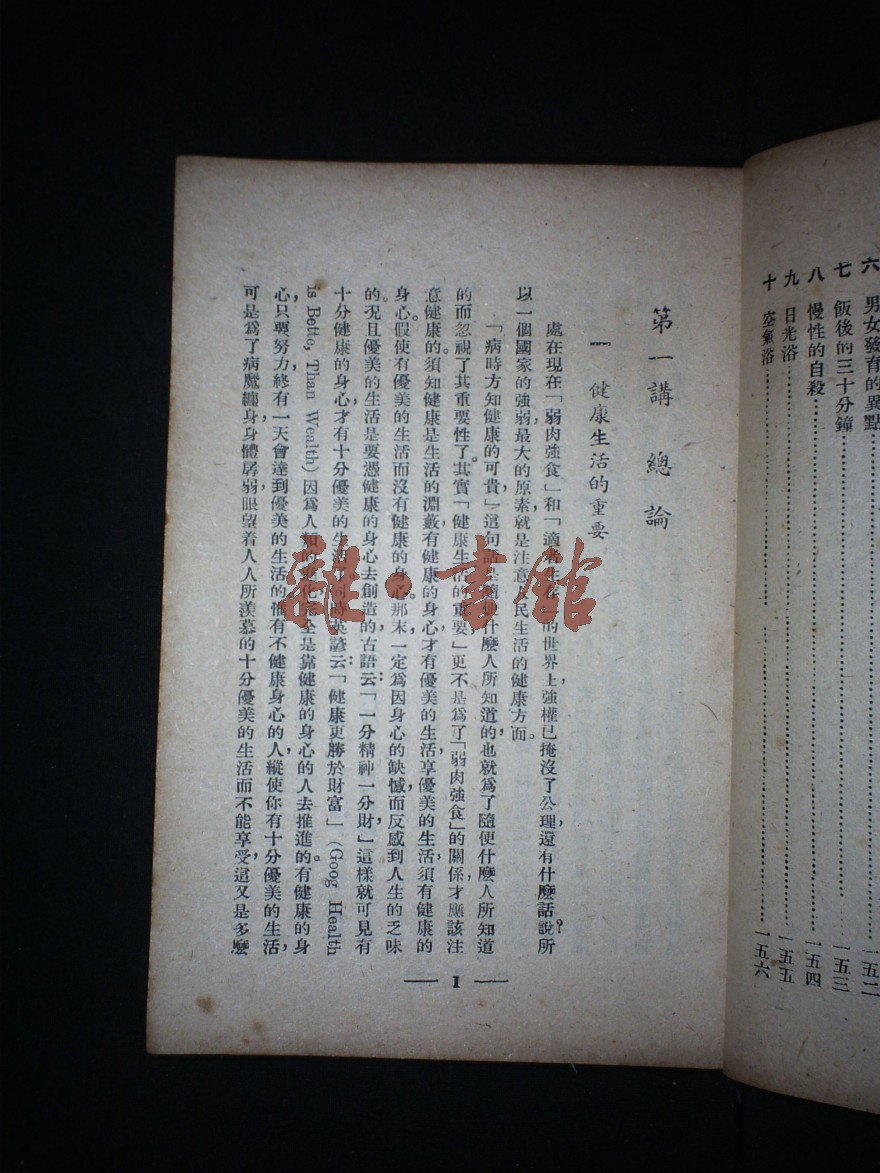 六　男女發育的異點……一五二
七　飯後的三十分鐘……一五三
八　慢性的自殺……一五四
九　日光浴……一五五
十　空氣浴……一五六
第一講　總論
一　健康生活的重要
處在現在「弱肉強食」和「適者生存」的世界上，強權已掩沒了公理，還有什麼話說？所
以一個國家的強弱，最大的原素，就是注意人民生活的健康方面。
「病時方知健康的可貴，」這句話是隨便什麼人所知道的，也就爲了隨便什麼人所知道
的而忽視了其重要性了。其實「健康生活的重要，」更不是爲了「弱肉強食」的關係，才應該注
意健康的。須知健康是生活的淵藪，有健康的身心，才有優美的生活，享優美的生活，須有健康的
身心。假使有優美的生活而沒有健康的身心，那末，一定爲因身心的缺憾，而反感到人生的乏味
的。况且優美的生活，是要憑健康的身心去創造的，古語云：「一分精神一分財，」這樣就可見有
十分健康的身心，才有十分優美的生活了。同時英諺云：「健康更勝於財富」（Goog Health
is Bette, Than Wealth）因爲人類的進化，完全是靠健康的身心的人去推進的。有健康的身
心，只要努力，終有一天會達到優美的生活的，惟有不健康身心的人，縱使你有十分優美的生活，
可是爲了病魔纏身，身體孱弱，眼望着人人所羨慕的十分優美的生活而不能享受，這又是多麼
— 1 —
雜·書館